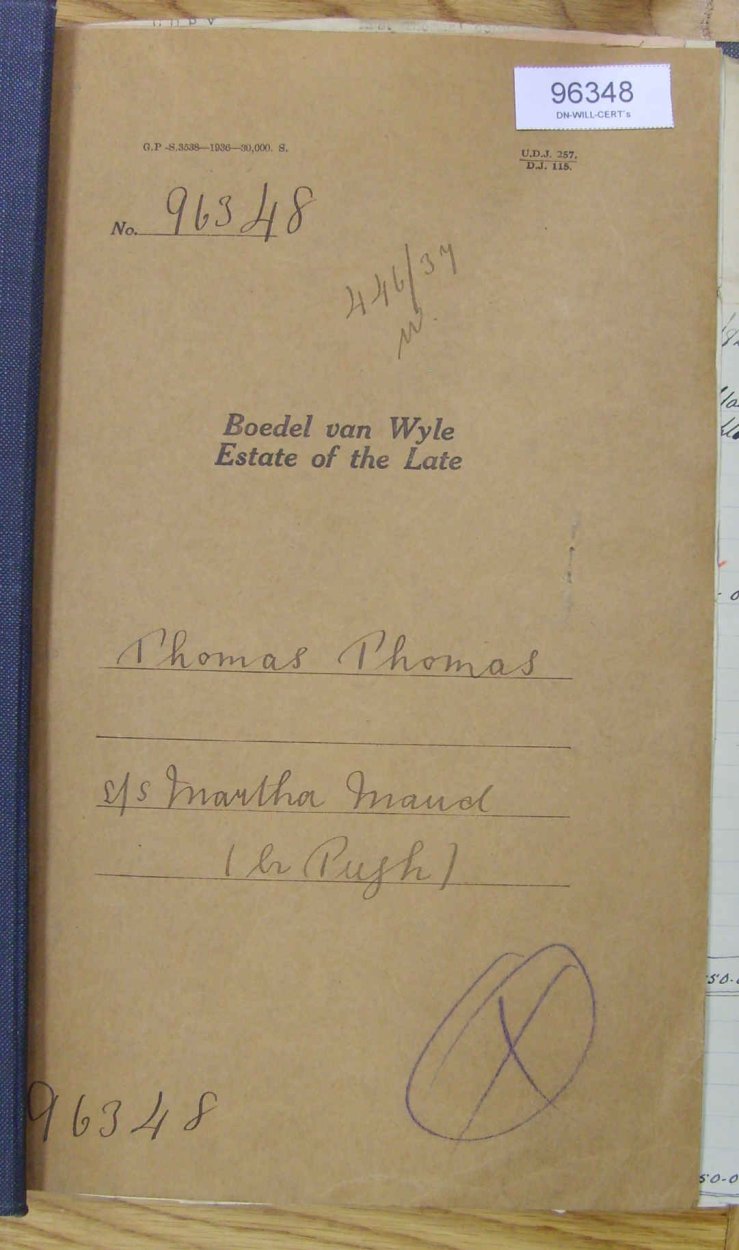 96348
DN-WILL-CERT's
G.P.-S.3538—1936—30,000. S.
U.D.J. 257.
D.J. 115.
No. 96348
446/37
Boedel van Wyle
Estate of the Late
Thomas Thomas
s/s Martha Maud
(br Pugh)
96348
X